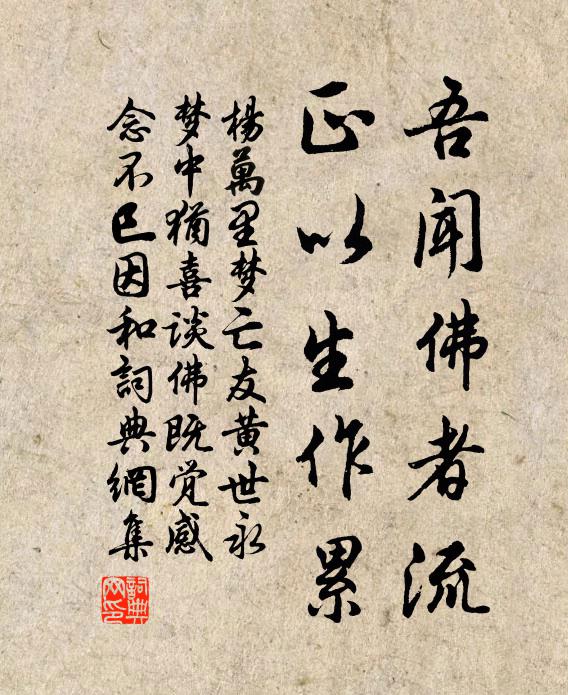 吾闻佛者流
正以生作累
楊萬里梦亡友黄世永
梦中猶喜谈佛既觉感
念不已因和詞典網集
詞典
网印